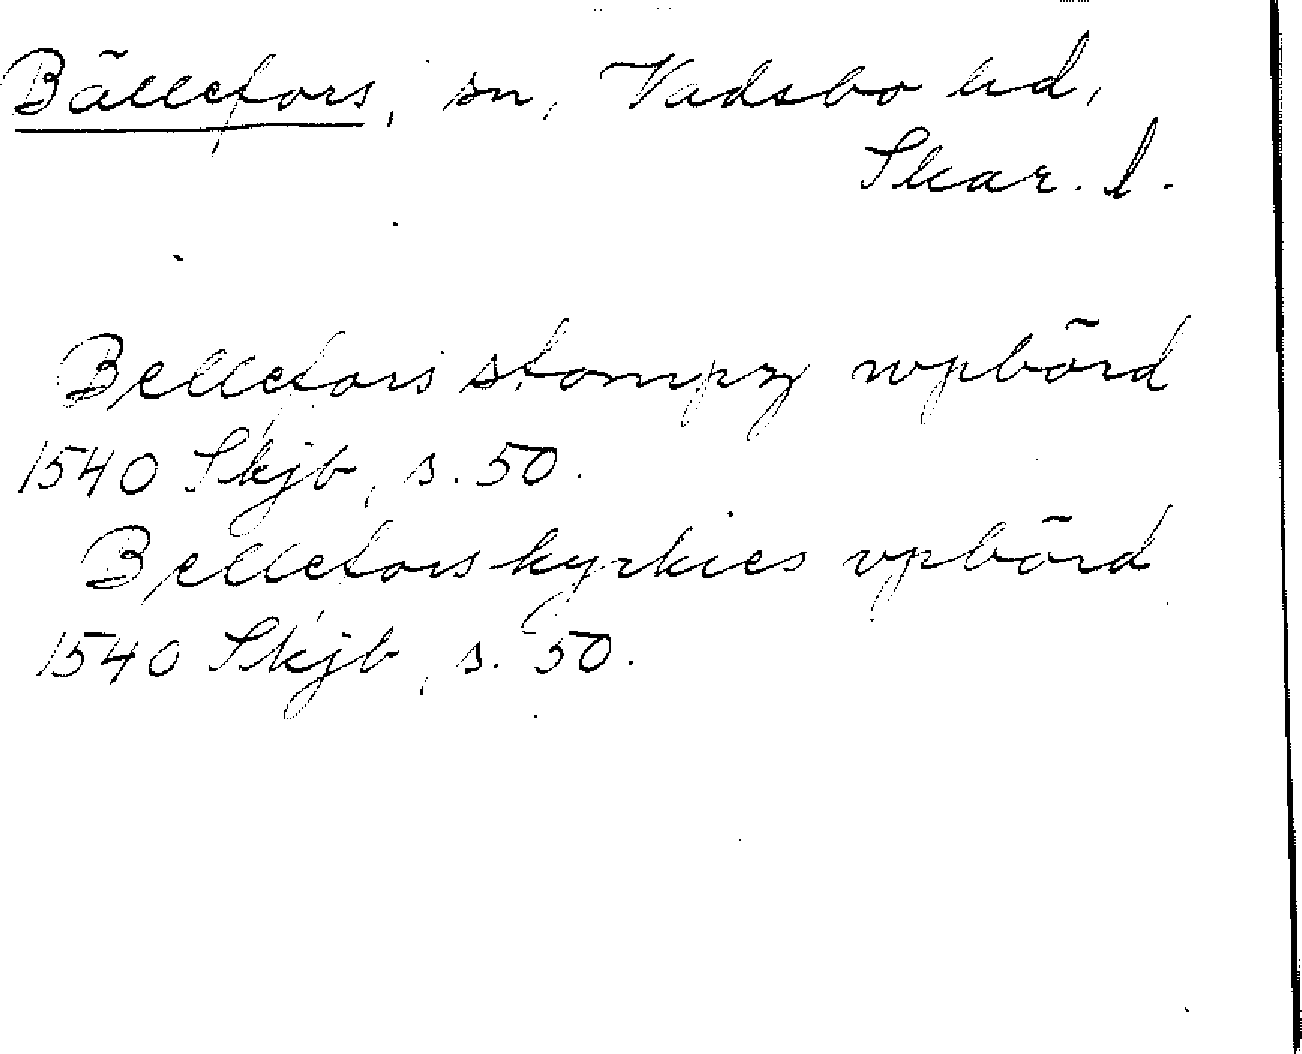 Bällefors, sn, Vadsbo hd,
Skar. l.
Bellefors stompz wpbörd
1540 Skjb, s. 50.
Bellefors kyrkies vpbörd
1540 Skjb, s. 50.